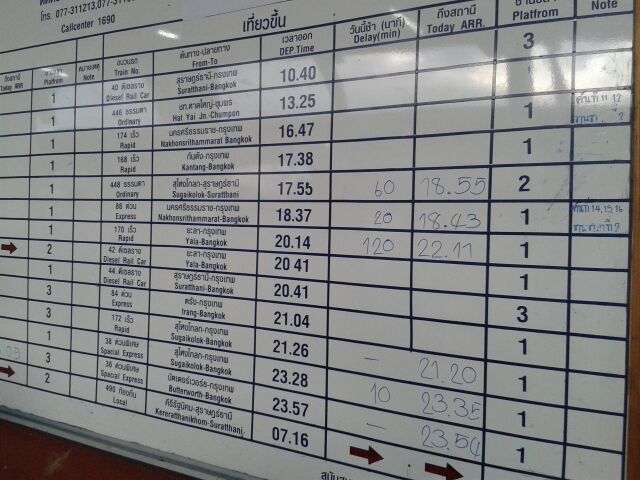 โทร. 077-311213,077-311
Callcenter 1690
เที่ยวขึ้น
ถึงสถานี
Today ARR
Platfrom
หมายเหตุ
Note
ขบวนรถ
Train No.
ต้นทาง-ปลายทาง
From-To
เวลาออก
DEP.Time
วันนี้ช้า (นาที)
Delay(min)
ถึงสถานี
Today ARR.
Platfrom
Note
1
40 ดีเซลราง
Diesel Rail Car
สุราษฎร์ธานี-กรุงเทพ
Suratthani-Bangkok
10.40
3
1
446 ธรรมดา
Ordinary
ชท.หาดใหญ่-ชุมพร
Hat Yai Jn.-Chumpon
13.25
1
1
174 เร็ว
Rapid
นครศรีธรรมราช-กรุงเทพ
Nakhonsrithammarat-Bangkok
16.47
1
1
168 เร็ว
Rapid
กันตัง-กรุงเทพ
Kantang-Bangkok
17.38
1
448 ธรรมดา
Ordinary
สุไหงโกลก-สุราษฎร์ธานี
Sugaikolok-Suratthani
17.55
60
18.55
2
1
86 ด่วน
Express
นครศรีธรรมราช-กรุงเทพ
Nakhonsrithammarat-Bangkok
18.37
20
18.43
1
1
170 เร็ว
Rapid
ยะลา-กรุงเทพ
Yala-Bangkok
20.14
120
22.11
1
2
42 ดีเซลราง
Diesel Rail Car
ยะลา-กรุงเทพ
Yala-Bangkok
20 41
1
1
44 ดีเซลราง
Diesel Rail Car
สุราษฎร์ธานี-กรุงเทพ
Suratthani-Bangkok
20.41
3
3
84 ด่วน
Express
ตรัง-กรุงเทพ
trang-Bangkok
21.04
1
3
172 เร็ว
Rapid
สุไหงโกลก-กรุงเทพ
Sugaikolok-Bangkok
21.26
–
21.20
1
1
38 ด่วนพิเศษ
Spacial Express
สุไหงโกลก-กรุงเทพ
Sugaikolok-Bangkok
23.28
10
23.35
1
3
36 ด่วนพิเศษ
Special Express
บัตเตอร์เวอร์ธ-กรุงเทพ
Butterworth-Bangkok
23.57
–
23.54
1
2
490 ท้องถิ่น
Local
คีรีรัฐนิคม-สุราษฎร์ธานี
Kereratthanikhom-Suratthani
07.16
1